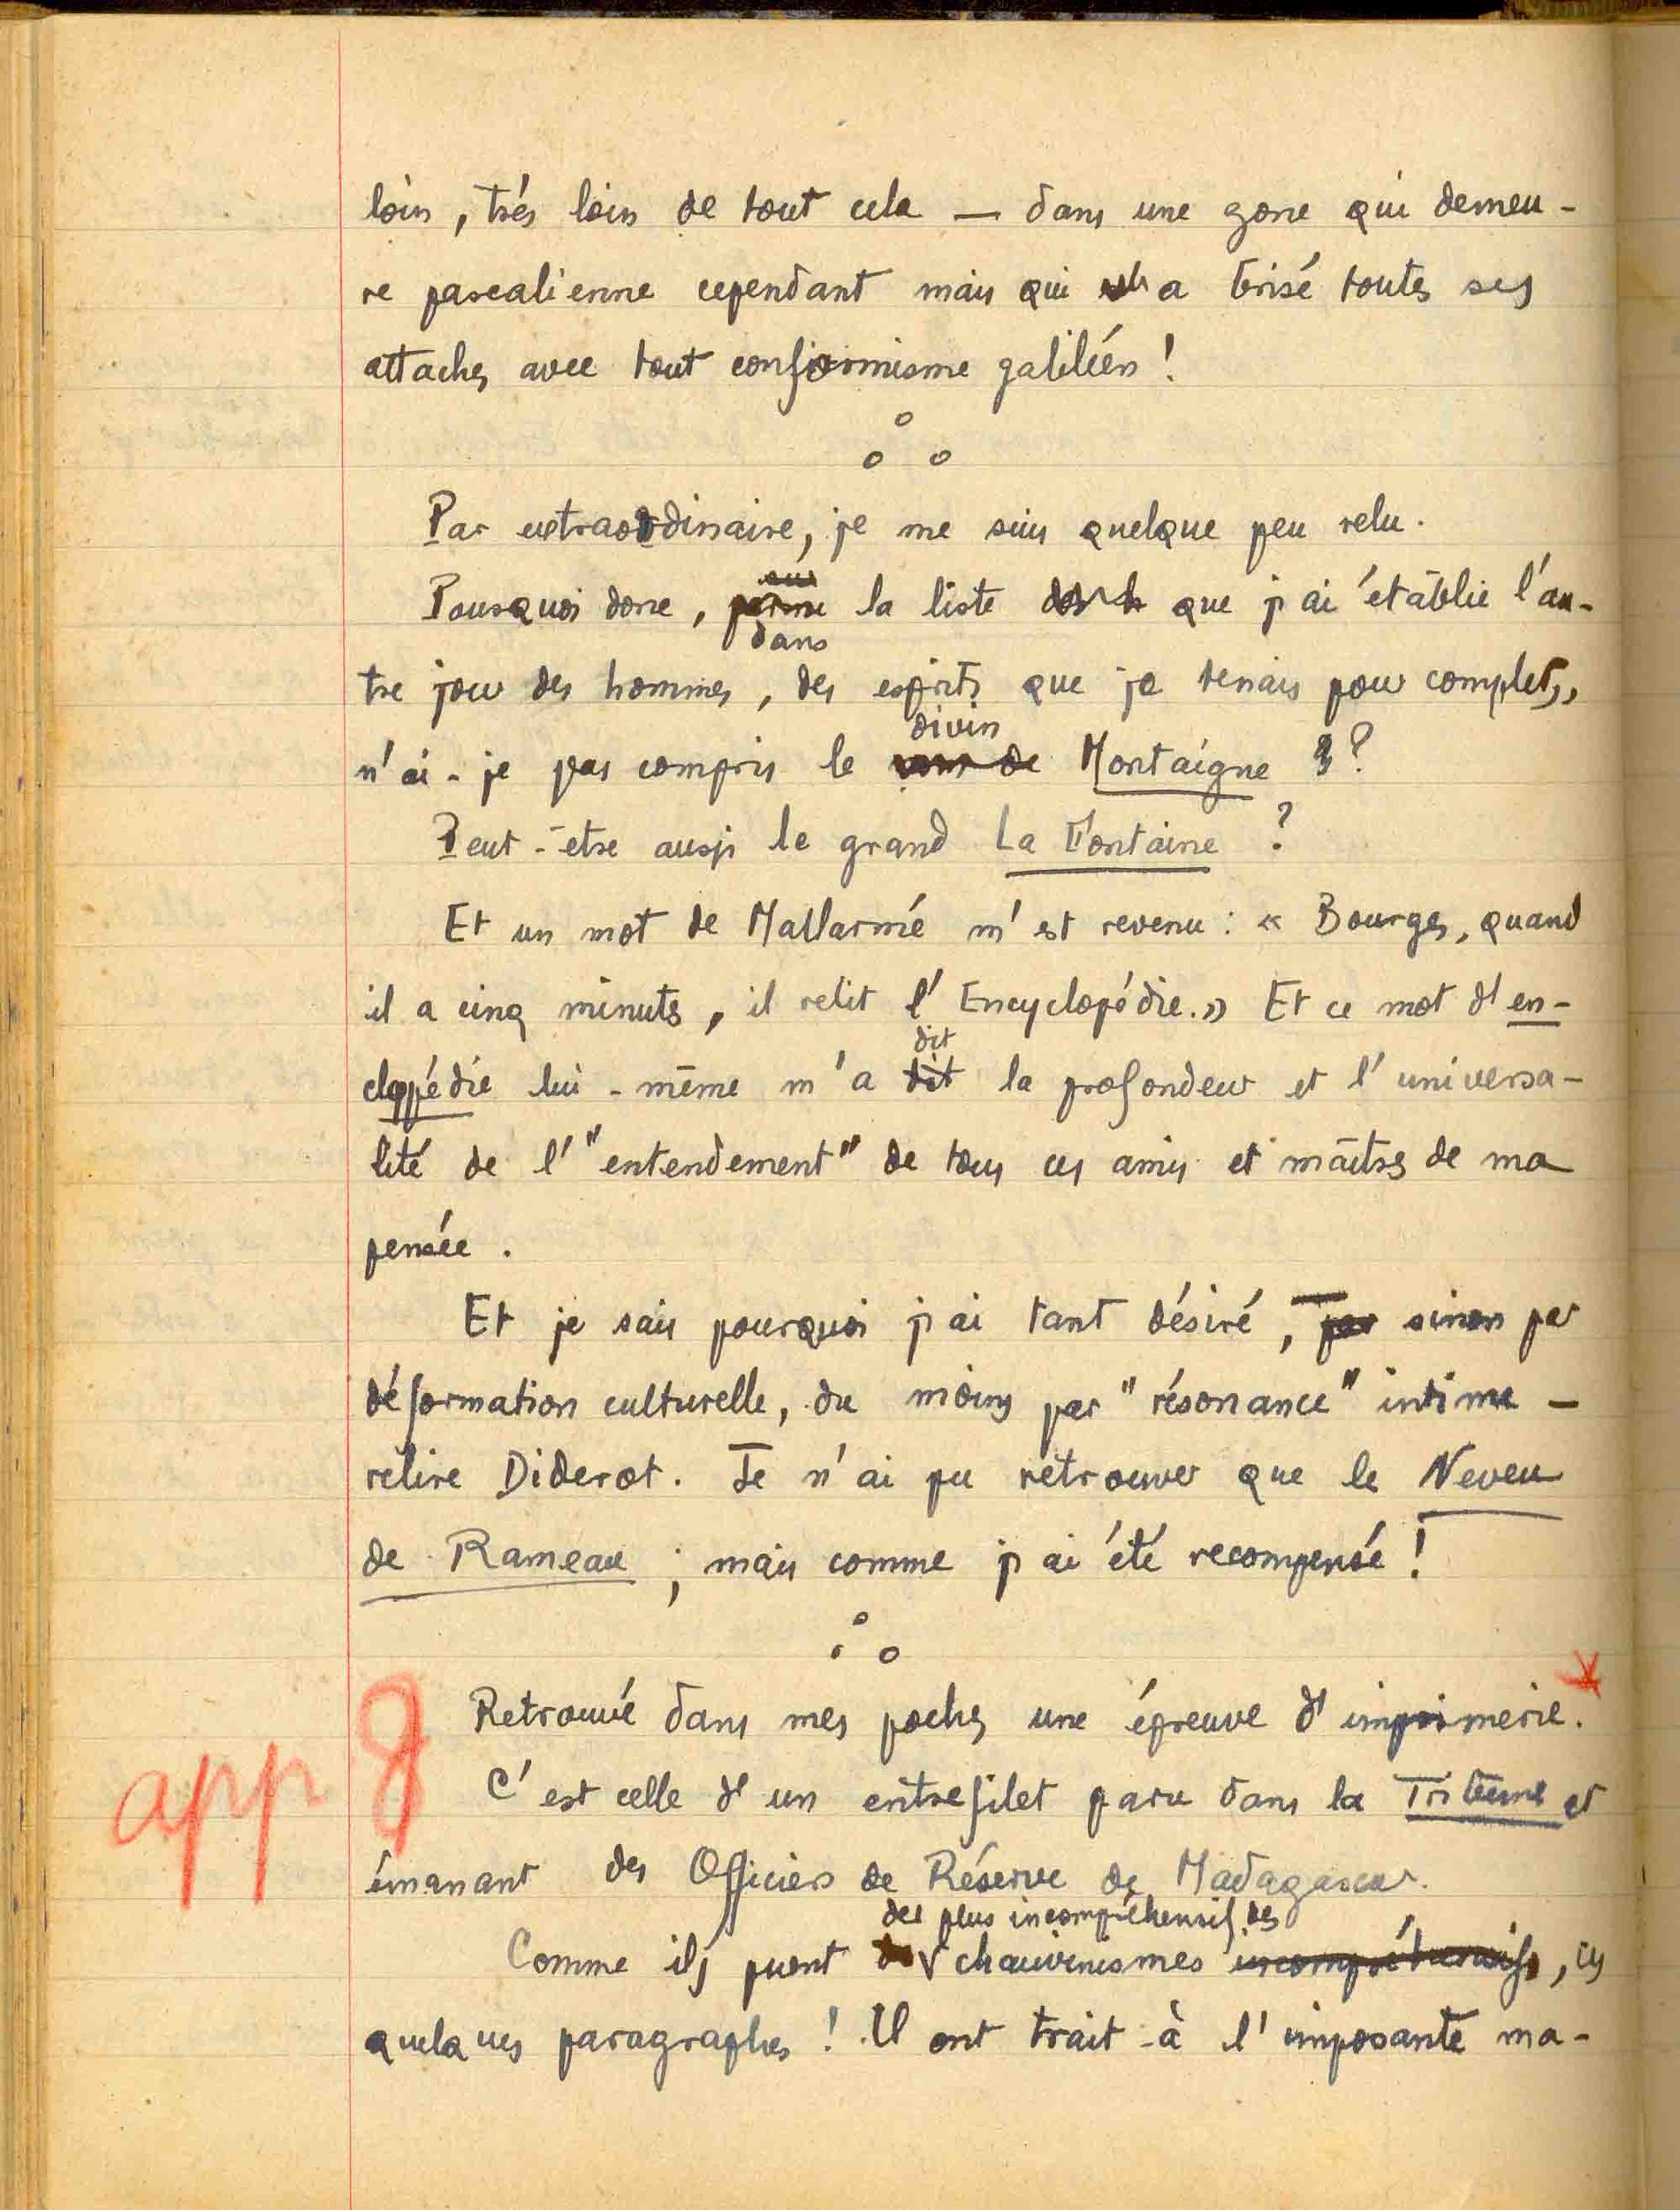 loin, très loin de tout cela — dans une zone qui demeu-
re pascalienne cependant mais qui a brisé toutes ses
attaches avec tout conformisme galiléen !
Par extraordinaire, je me suis quelque peu relu.
sur
Pourquoi donc, parmi la liste que j'ai établie l'au-
dans
tre jour des hommes, des esprits que je tenais pour complets,
divin
n'ai-je pas compris le Montaigne ?
Peut-être aussi le grand La Fontaine ?
Et un mot de Mallarmé m'est revenu : « Bourges, quand
il a cinq minutes, il relit l'Encyclopédie. » Et ce mot d'en-
dit
clopédie lui-même m'a dit la profondeur et l'universa-
lité de l'"entendement" de tous ces amis et maîtres de ma
pensée.
Et je sais pourquoi j'ai tant désiré, par sinon par
déformation culturelle, du moins par "résonance" intime —
relire Diderot. Je n'ai pu retrouver que le Neveu
de Rameau ; mais comme j'ai été recompensé !
Retrouvé dans mes poches une épreuve d'imprimerie.
app
C'est celle d'un entrefilet paru dans la Tribune et
émanant des Officiers de Réserve de Madagascar.
des plus incompréhensif des
Comme ils puent chauvinismes incompréhensifs, ces
quelques paragraphes ! Il ont trait à l'imposante ma-